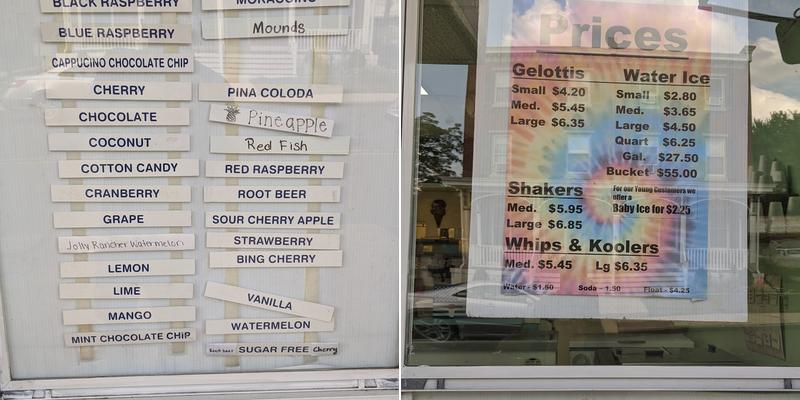 BLACK RASPBERRY
BLUE RASPBERRY
CAPPUCINO CHOCOLATE CHIP
CHERRY
CHOCOLATE
COCONUT
COTTON CANDY
CRANBERRY
GRAPE
Jolly Rancher Watermelon
LEMON
LIME
MANGO
MINT CHOCOLATE CHIP
Mounds
PINA COLODA
Pineapple
Red Fish
RED RASPBERRY
ROOT BEER
SOUR CHERRY APPLE
STRAWBERRY
BING CHERRY
VANILLA
WATERMELON
SUGAR FREE Cherry
Prices
Gelottis
Small $4.20
Med. $5.45
Large $6.35
Water Ice
Small $2.80
Med. $3.65
Large $4.50
Quart $6.25
Gal. $27.50
Bucket $55.00
Shakers
Med. $5.95
Large $6.85
For our Young Customers we
offer a
Baby Ice for $2.25
Whips & Koolers
Med. $5.45 Lg $6.35
Water - $1.50 Soda - 1.50 Float - $4.25